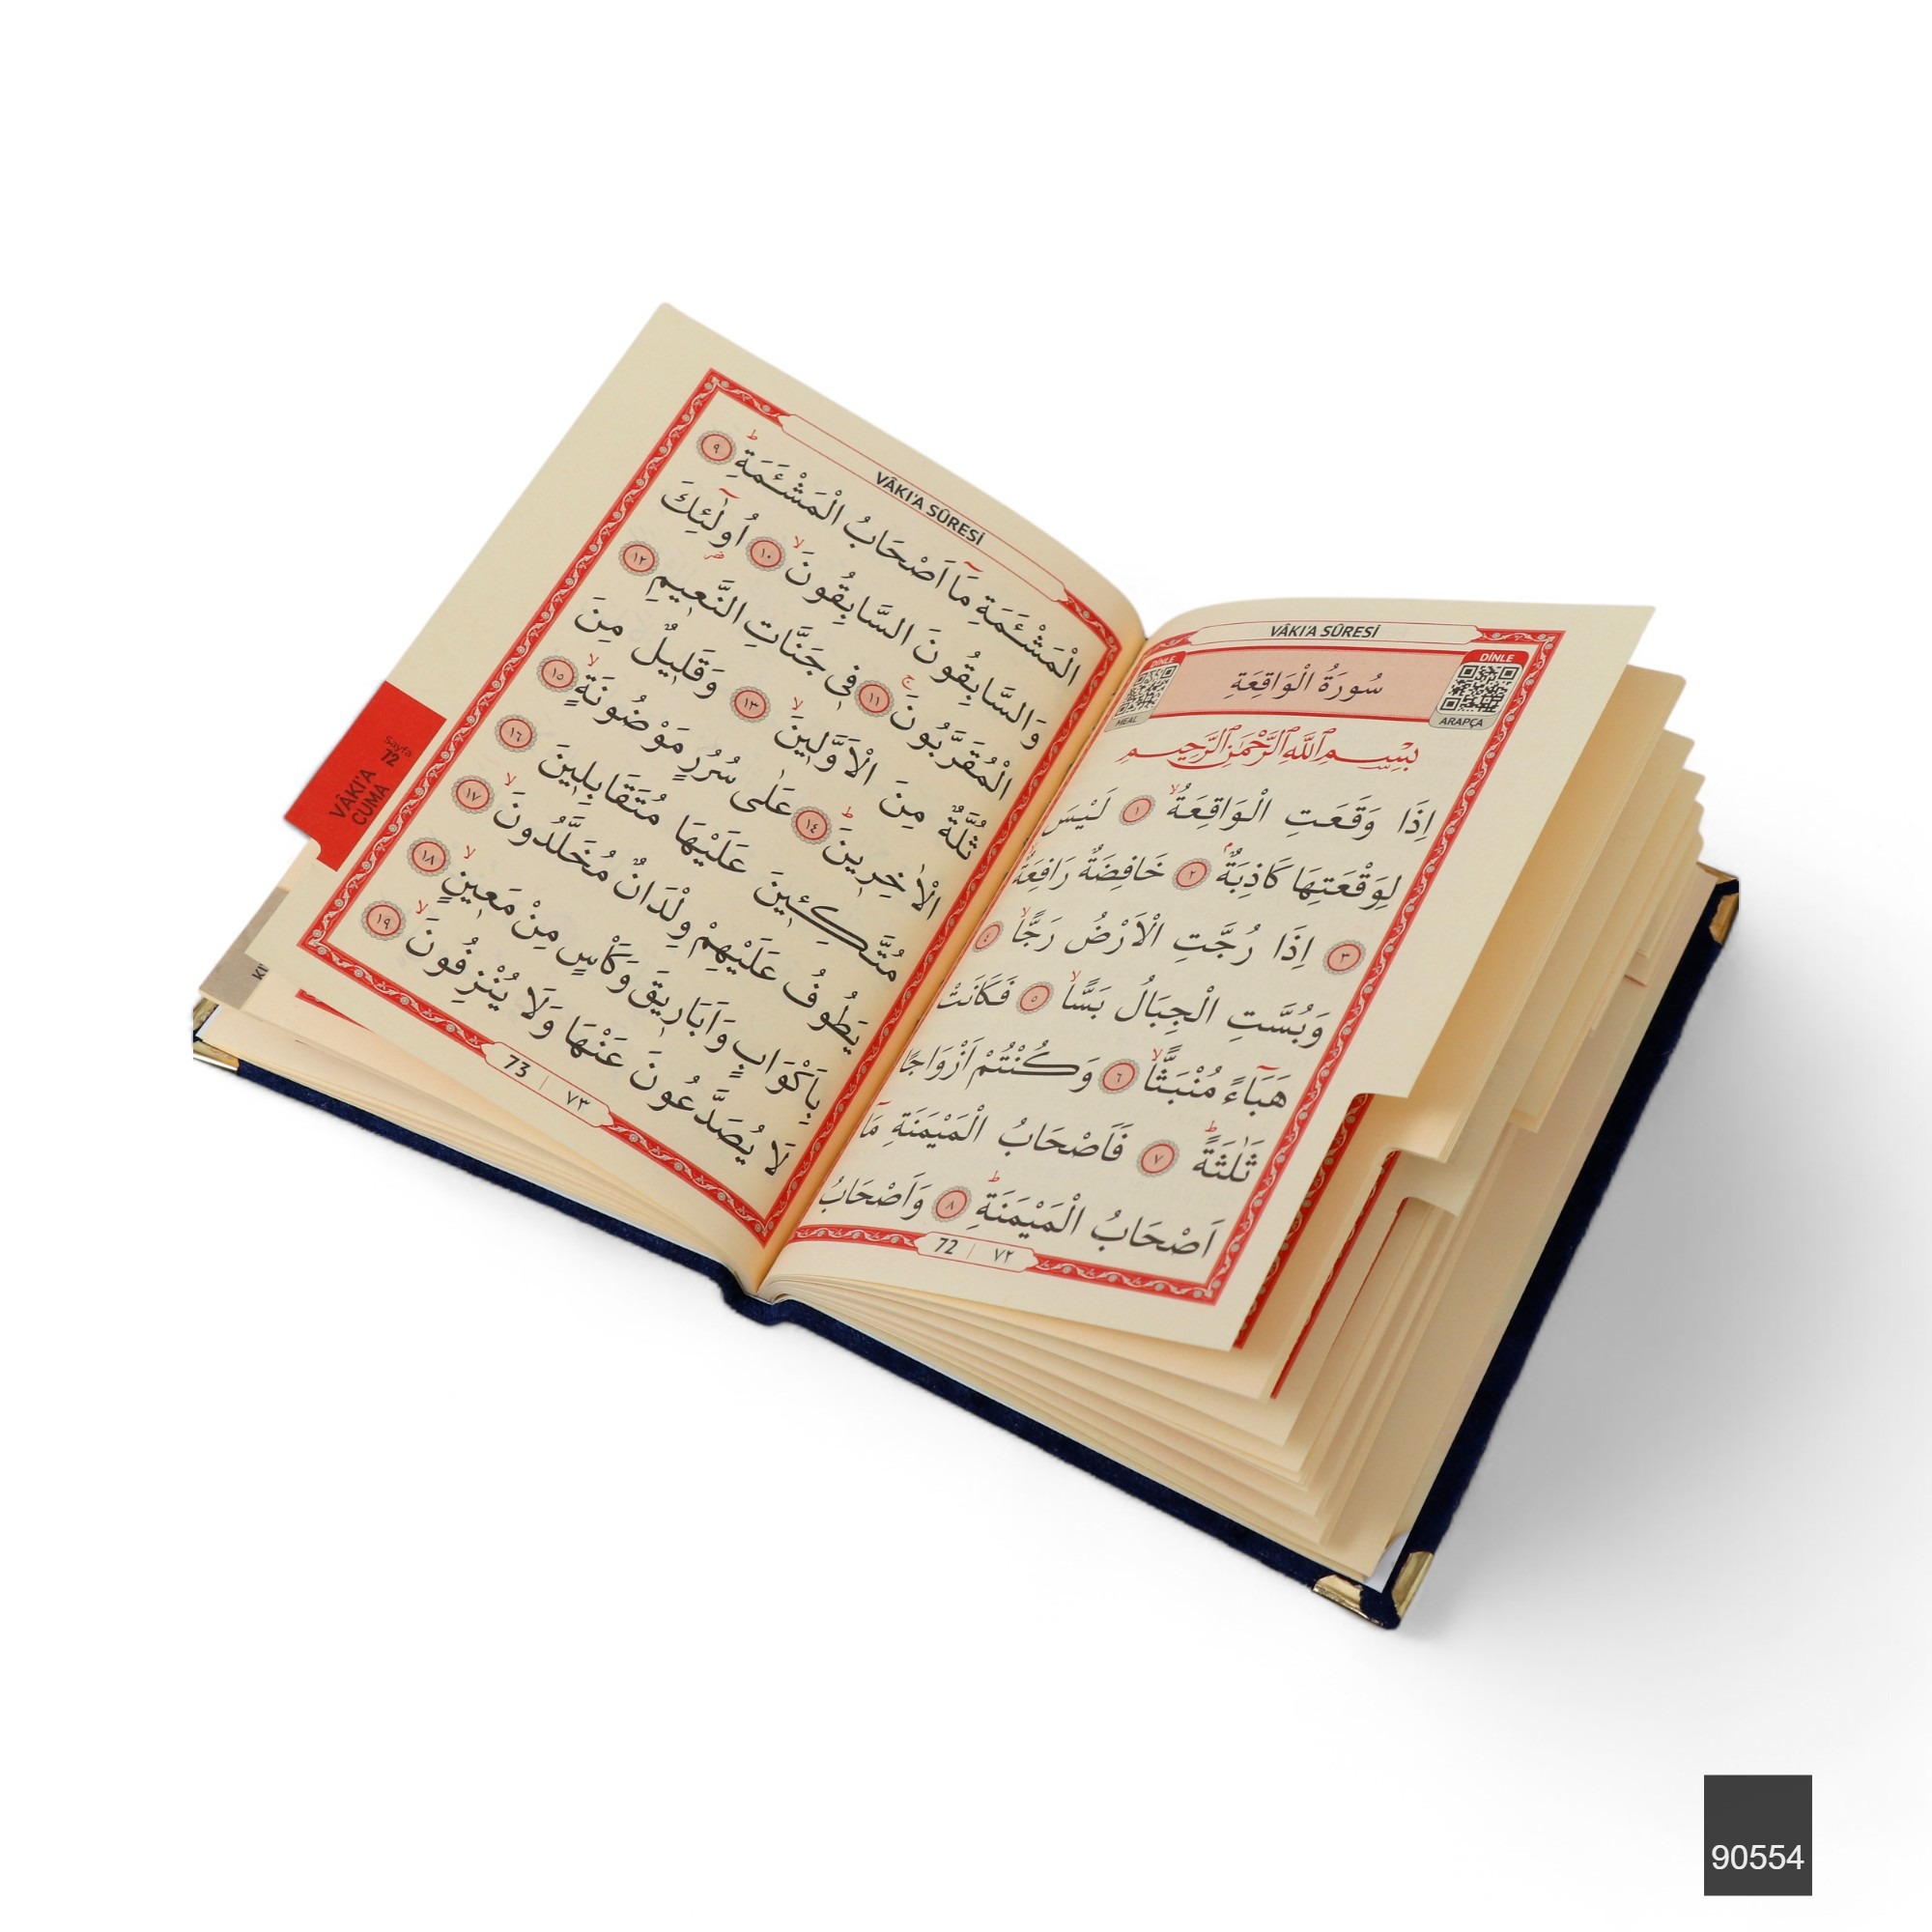 VÂKI'A SÛRESİ
DİNLE
MEAL
سُورَةُ الْوَاقِعَةِ
DİNLE
ARAPÇA
بِسْمِ اللّٰهِ الرَّحْمٰنِ الرَّحِيمِ
اِذَا وَقَعَتِ الْوَاقِعَةُۙ ﴿١﴾ لَيْسَ
لِوَقْعَتِهَا كَاذِبَةٌۢ ﴿٢﴾ خَافِضَةٌ رَافِعَةٌ
﴿٣﴾ اِذَا رُجَّتِ الْاَرْضُ رَجًّاۙ ﴿٤﴾
وَبُسَّتِ الْجِبَالُ بَسًّاۙ ﴿٥﴾ فَكَانَتْ
هَبَٓاءً مُنْبَثًّاۙ ﴿٦﴾ وَكُنْتُمْ اَزْوَاجًا
ثَلٰثَةًۜ ﴿٧﴾ فَاَصْحَابُ الْمَيْمَنَةِ مَٓا
اَصْحَابُ الْمَيْمَنَةِۜ ﴿٨﴾ وَاَصْحَابُ
72 | ٧٢
VÂKI'A SÛRESİ
الْمَشْـَٔمَةِ مَٓا اَصْحَابُ الْمَشْـَٔمَةِۜ ﴿٩﴾
وَالسَّابِقُونَ السَّابِقُونَۙ ﴿١٠﴾ اُو۬لٰٓئِكَ
الْمُقَرَّبُونَۚ ﴿١١﴾ ف۪ي جَنَّاتِ النَّع۪يمِ ﴿١٢﴾
ثُلَّةٌ مِنَ الْاَوَّل۪ينَۙ ﴿١٣﴾ وَقَل۪يلٌ مِنَ
الْاٰخِر۪ينَۜ ﴿١٤﴾ عَلٰى سُرُرٍ مَوْضُونَةٍۙ ﴿١٥﴾
مُتَّكِـ۪ٔينَ عَلَيْهَا مُتَقَابِل۪ينَ ﴿١٦﴾
يَطُوفُ عَلَيْهِمْ وِلْدَانٌ مُخَلَّدُونَۙ ﴿١٧﴾
بِاَكْوَابٍ وَاَبَار۪يقَ وَكَأْسٍ مِنْ مَع۪ينٍۙ ﴿١٨﴾
لَا يُصَدَّعُونَ عَنْهَا وَلَا يُنْزِفُونَۙ ﴿١٩﴾
73 | ٧٣
Sayfa
72
VÂKI'A
CUMA
90554